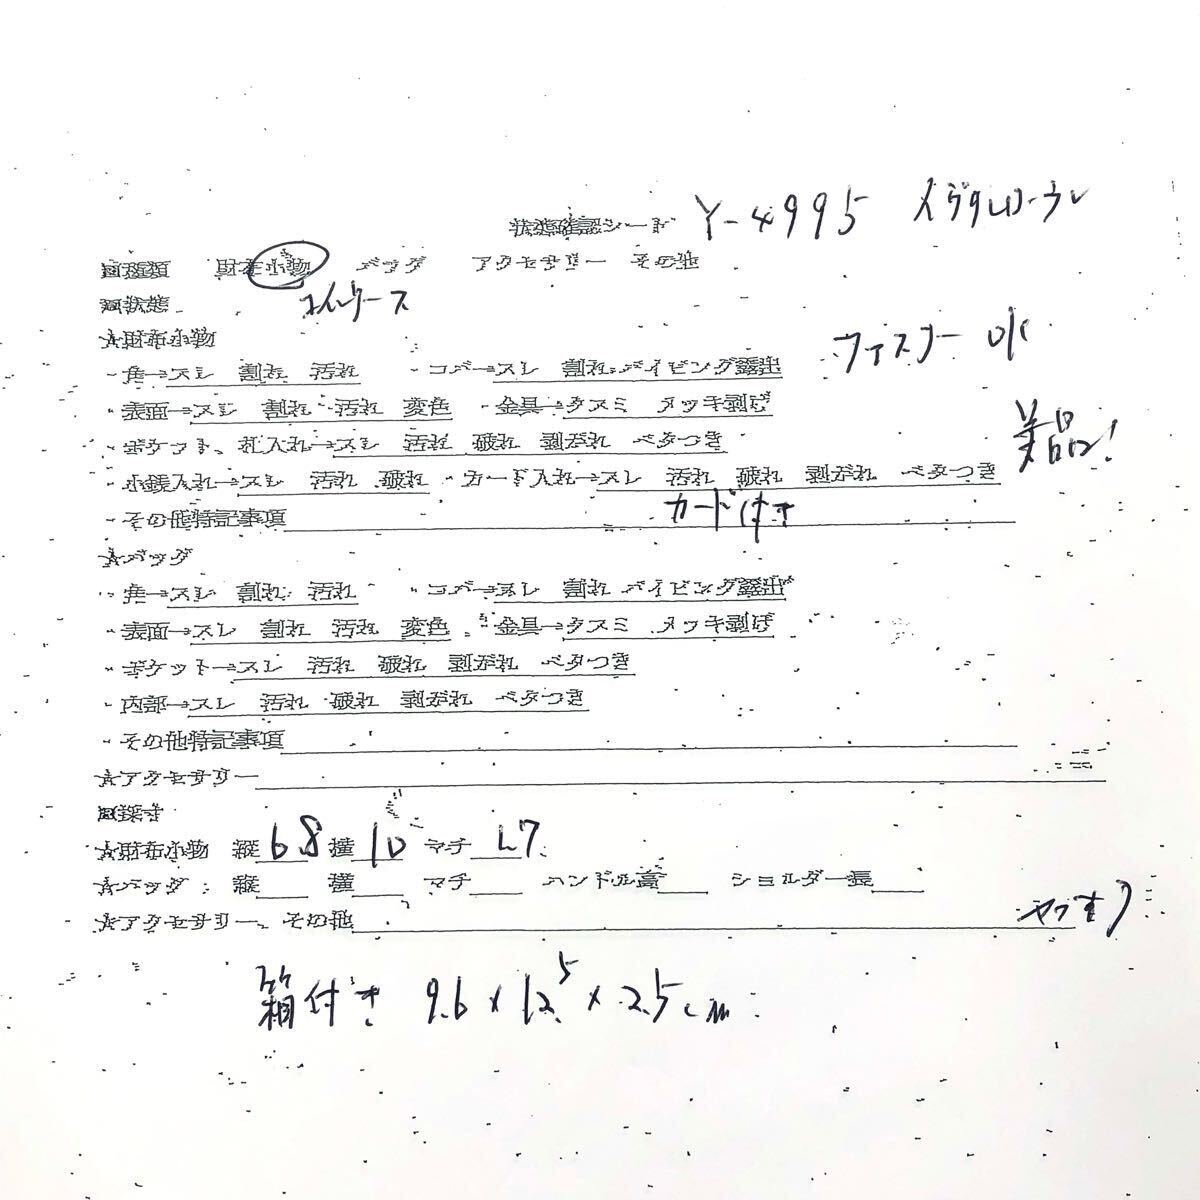 状態確認シート Y-4995 イヴサンローラン
□種類 財布小物 バッグ アクセサリー その他
□状態 コインケース
☆財布小物
・角→スレ 割れ 汚れ ・コバ→スレ 割れ パイピング露出 ファスナー OK
・表面→スレ 割れ 汚れ 変色 ・金具→クスミ メッキ剥げ
・ポケット、札入れ→スレ 汚れ 破れ 剥がれ ベタつき 美品!
・小銭入れ→スレ 汚れ 破れ ・カード入れ→スレ 汚れ 破れ 剥がれ ベタつき
・その他特記事項 カード付き
☆バッグ
・角→スレ 割れ 汚れ ・コバ→スレ 割れ パイピング露出
・表面→スレ 割れ 汚れ 変色 ・金具→クスミ メッキ剥げ
・ポケット→スレ 汚れ 破れ 剥がれ ベタつき
・内部→スレ 汚れ 破れ 剥がれ ベタつき
・その他特記事項
☆アクセサリー
□採寸
☆財布小物 縦 6.8 横 10 マチ 1.7
☆バッグ: 縦 横 マチ ハンドル高 ショルダー長
☆アクセサリー、その他
箱付き 9.6×12.5×2.5cm